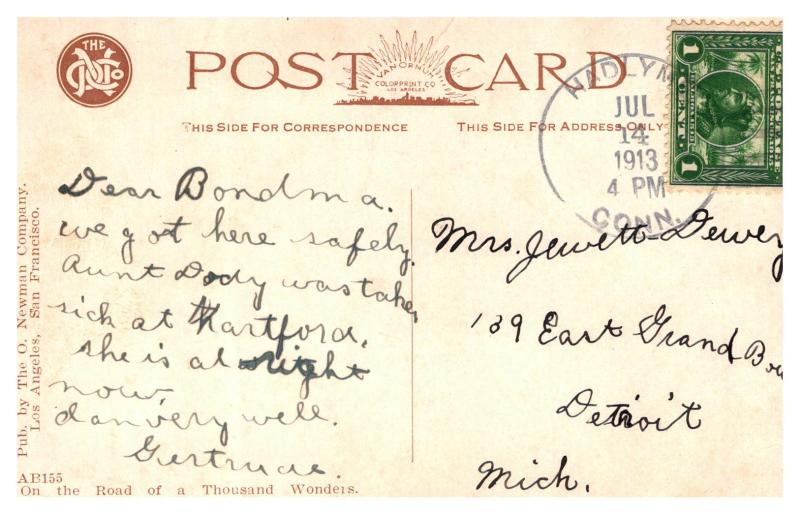 THE
O N Co
POST CARD
VAN ORNUM
COLORPRINT CO
LOS ANGELES
THIS SIDE FOR CORRESPONDENCE
THIS SIDE FOR ADDRESS ONLY
HADLYM
JUL
14
1913
4 PM
CONN.
1 CENT 1
Dear Bondma.
we got here safely.
Aunt Dody was taken
sick at Hartford,
she is al right
now
dan very well.
Gertrude.
Mrs. Jewett Dewey
139 East Grand Bou
Detroit
Mich.
Pub. by The O. Newman Company.
Los Angeles, San Francisco.
AB155
On the Road of a Thousand Wonders.